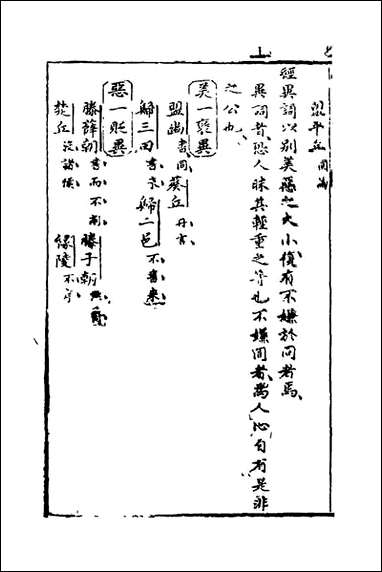 上
翟平丘同為
經異詞以别美惡之大小復有不嫌於同者焉
異詞者恐人昧其輕重之等也不嫌同者蓋人心自有是非
之公也
美一襃異
盟幽書同葵丘丹言
歸三田書來歸二邑不書來
惡一貶異
滕薛朝書而不削滕子朝
荻丘没諸侯緣陵不序